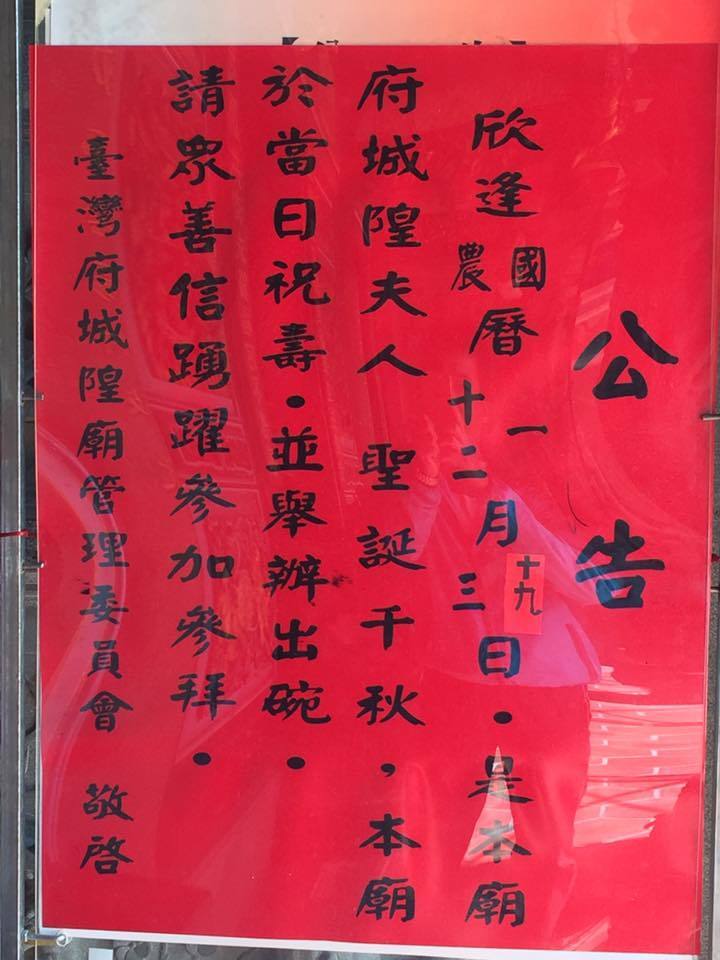 公告
欣逢國農曆一十二月十九三日．是本廟
府城隍夫人 聖誕千秋，本廟
於當日祝壽．並舉辦出碗．
請眾善信踴躍參加參拜．
臺灣府城隍廟管理委員會 敬啓